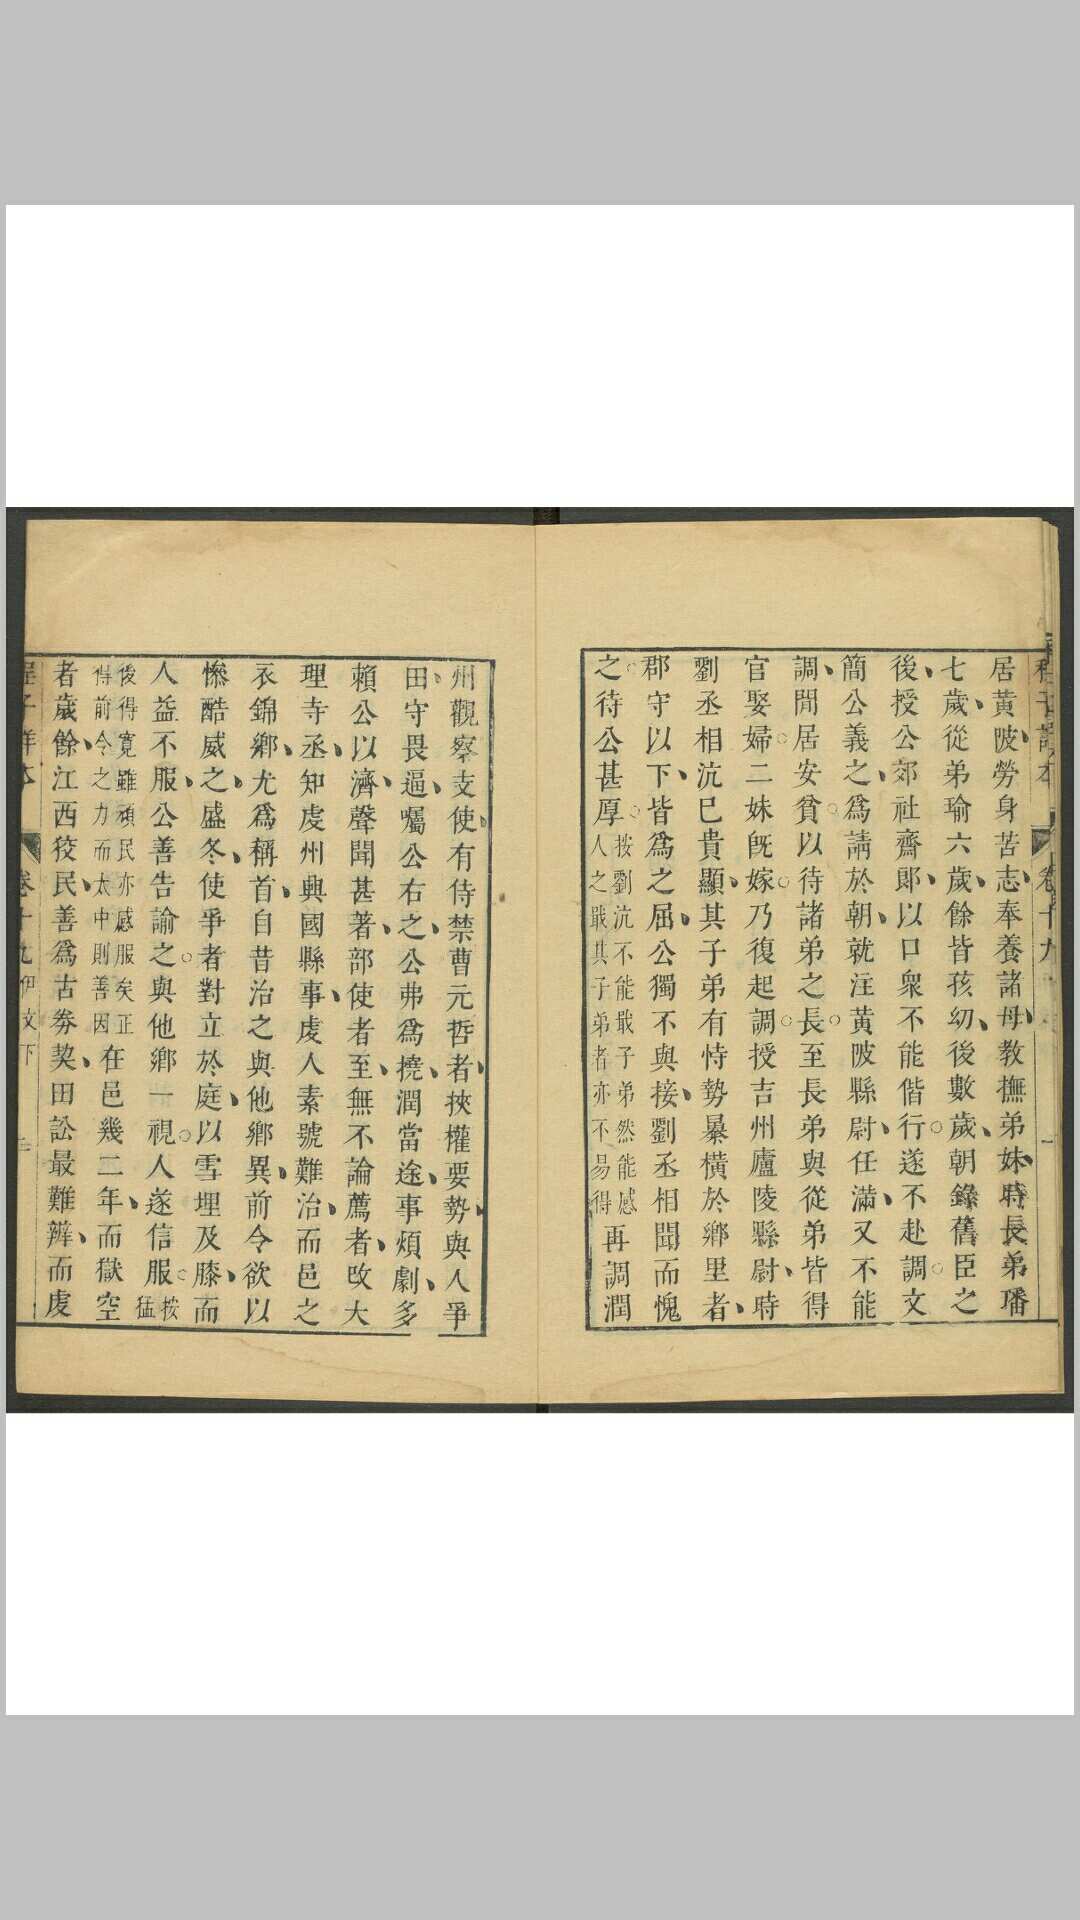 卷十九
居黃陂勞身苦志奉養諸母教撫弟妹時長弟璠
七歲從弟瑜六歲餘皆孩幼後數歲朝錄舊臣之
後授公郊社齋郎以口衆不能偕行遂不赴調文
簡公義之爲請於朝就注黃陂縣尉任滿又不能
調閒居安貧以待諸弟之長至長弟與從弟皆得
官娶婦二妹旣嫁乃復起調授吉州廬陵縣尉時
劉丞相沆已貴顯其子弟有恃勢暴橫於鄉里者
郡守以下皆爲之屈公獨不與接劉丞相聞而愧
之待公甚厚
按劉沆不能戢子弟然能感
人之戢其子弟者亦不易得
再調潤
州觀察支使有侍禁曹元哲者挾權要勢與人爭
田守畏逼囑公右之公弗爲撓潤當途事煩劇多
賴公以濟聲聞甚著部使者至無不論薦者改大
理寺丞知虔州興國縣事虔人素號難治而邑之
衣錦鄉尤爲稱首自昔治之與他鄉異前令欲以
慘酷威之盛冬使爭者對立於庭以雪埋及膝而
人益不服公善告諭之與他鄉一視人遂信服
按
猛
後得寬雖頑民亦感服矣正
得前令之力而太中則善因
在邑幾二年而獄空
者歲餘江西狡民善爲古券契田訟最難辨而虔
卷十九
伊文下